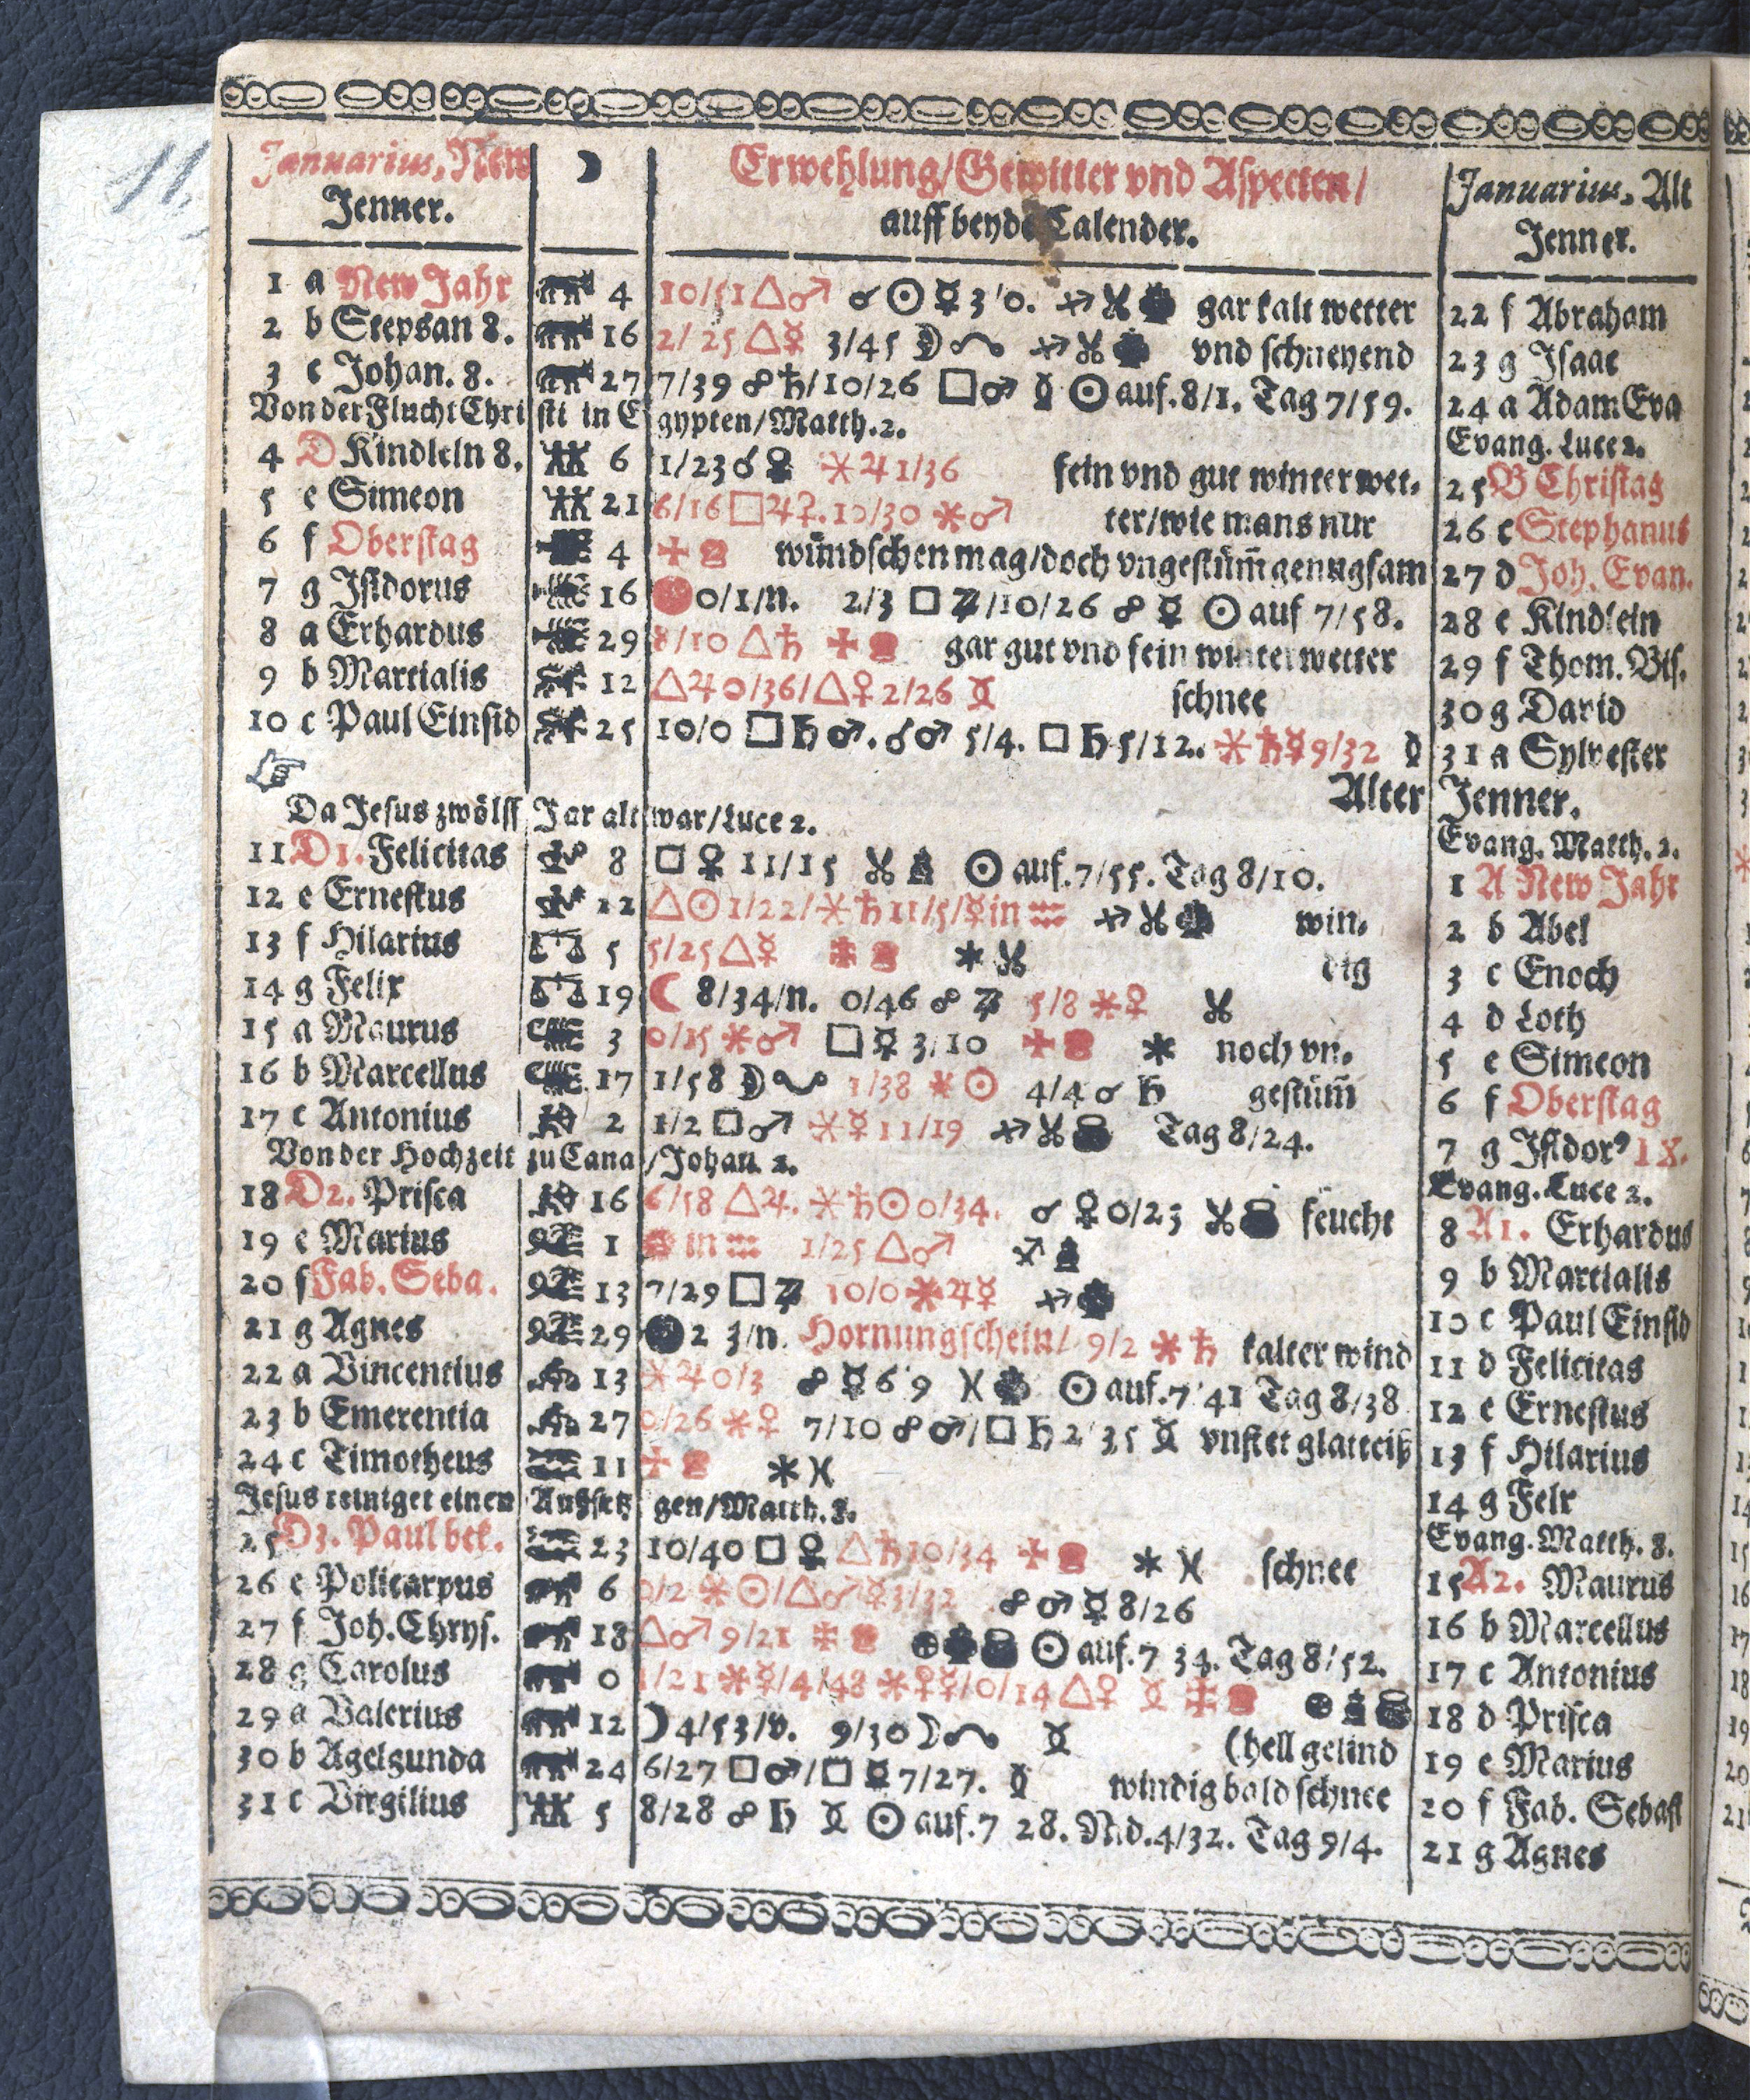 11.
Januarius, New ☽ Erwehlung/Gewitter vnd Aspecten/ Januarius, Alt
Jenner. auff beyde Calender. Jenner.
1 a New Jahr 4 10/51 △♂ ☌☉☿ 3'0. gar kalt wetter 22 f Abraham
2 b Stepsan 8. 16 2/25 △☿ 3/45 vnd schneyend 23 g Isaac
3 c Johan. 8. 27 7/39 ☍♄/10/26 □♂ ☉ auf. 8/1. Tag 7/59. 24 a Adam Eva
Von der Flucht Christi in Egypten/Matth. 2. Evang. Luce 2.
4 D Kindlein 8. 6 1/23 ☌ ✶♃ 1/36 fein vnd gut winter wet- 25 B Christag
5 e Simeon 21 6/16 □♃. 10/30 ✶♂ ter/wie mans nur 26 c Stephanus
6 f Oberstag 4 wündschen mag/doch vngestüm̃ genugsam 27 d Joh. Evan.
7 g Isidorus 16 0/1/n. 2/3 □♃/10/26 ☍☿ ☉ auf 7/58. 28 e Kindlein
8 a Erhardus 29 8/10 △♄ gar gut vnd fein winterwetter 29 f Thom. Bis.
9 b Martialis 12 △♃ 0/36/△♀ 2/26 schnee 30 g David
10 c Paul Einsid 25 10/0 □♄♂. ☌♂ 5/4. □♄ 5/12. ✶♄☿ 9/32 31 a Sylvester
☞ Alter Jenner.
Da Jesus zwölff Jar alt war/Luce 2. Evang. Matth. 2.
11 D1. Felicitas 8 □♀ 11/15 ☉ auf. 7/55. Tag 8/10. 1 A New Jahr
12 e Ernestus 22 △☉ 1/22/✶♄ 11/5/☿ in ♒ win- 2 b Abel
13 f Hilarius 5 5/25 △☿ dig 3 c Enoch
14 g Felix 19 ☾ 8/34/n. 0/46 ☍♃ 5/8 ✶♀ 4 d Loth
15 a Maurus 3 0/15 ✶♂ □☿ 3/10 noch vn- 5 e Simeon
16 b Marcellus 17 1/58 1/38 ✶☉ 4/4 ☌♄ gestüm̃ 6 f Oberstag
17 c Antonius 2 1/2 □♂ ✶☿ 11/19 Tag 8/24. 7 g Isidor⁹ 18.
Von der Hochzeit zu Cana/Johan. 2. Evang. Luce 2.
18 D2. Prisca 16 6/58 △♃. ✶♄☉ 0/34. ☌♀ 0/23 feucht 8 A1. Erhardus
19 e Marius 1 in ♒ 1/25 △♂ 9 b Martialis
20 f Fab. Seba. 13 7/29 □♃ 10/0 ✶♃☿ 10 c Paul Einsid
21 g Agnes 29 2 3/n. Hornungschein/ 9/2 ✶♄ kalter wind 11 d Felicitas
22 a Vincentius 13 ✶♃ 0/3 ☍☿ 6'9 ☉ auf. 7'41 Tag 8/38 12 e Ernestus
23 b Emerentia 27 0/26 ✶♀ 7/10 ☍♂/□♄ 2'35 vnstet glatteiß 13 f Hilarius
24 c Timotheus 11 14 g Felx
Jesus reiniget einen Aussetzgen/Matth. 8. Evang. Matth. 8.
25 D3. Paul bek. 23 10/40 □♀ △♄ 10/34 schnee 15 A2. Maurus
26 e Policarpus 6 0/2 ✶☉/△♂☿ 3/32 ☍♂☿ 8/26 16 b Marcellus
27 f Joh. Chrys. 18 △♂ 9/21 ☉ auf. 7 34. Tag 8/52. 17 c Antonius
28 g Carolus 0 1/21 ✶☿/4/48 ✶♀☿/0/14 △♀ 18 d Prisca
29 a Valerius 12 ☽ 4/53/v. 9/30 (hell gelind 19 e Marius
30 b Agelgunda 24 6/27 □♂/□☿ 7/27. windig bald schnee 20 f Fab. Sebast
31 c Virgilius 5 8/28 ☍♄ ☉ auf. 7 28. Nid. 4/32. Tag 9/4. 21 g Agnes